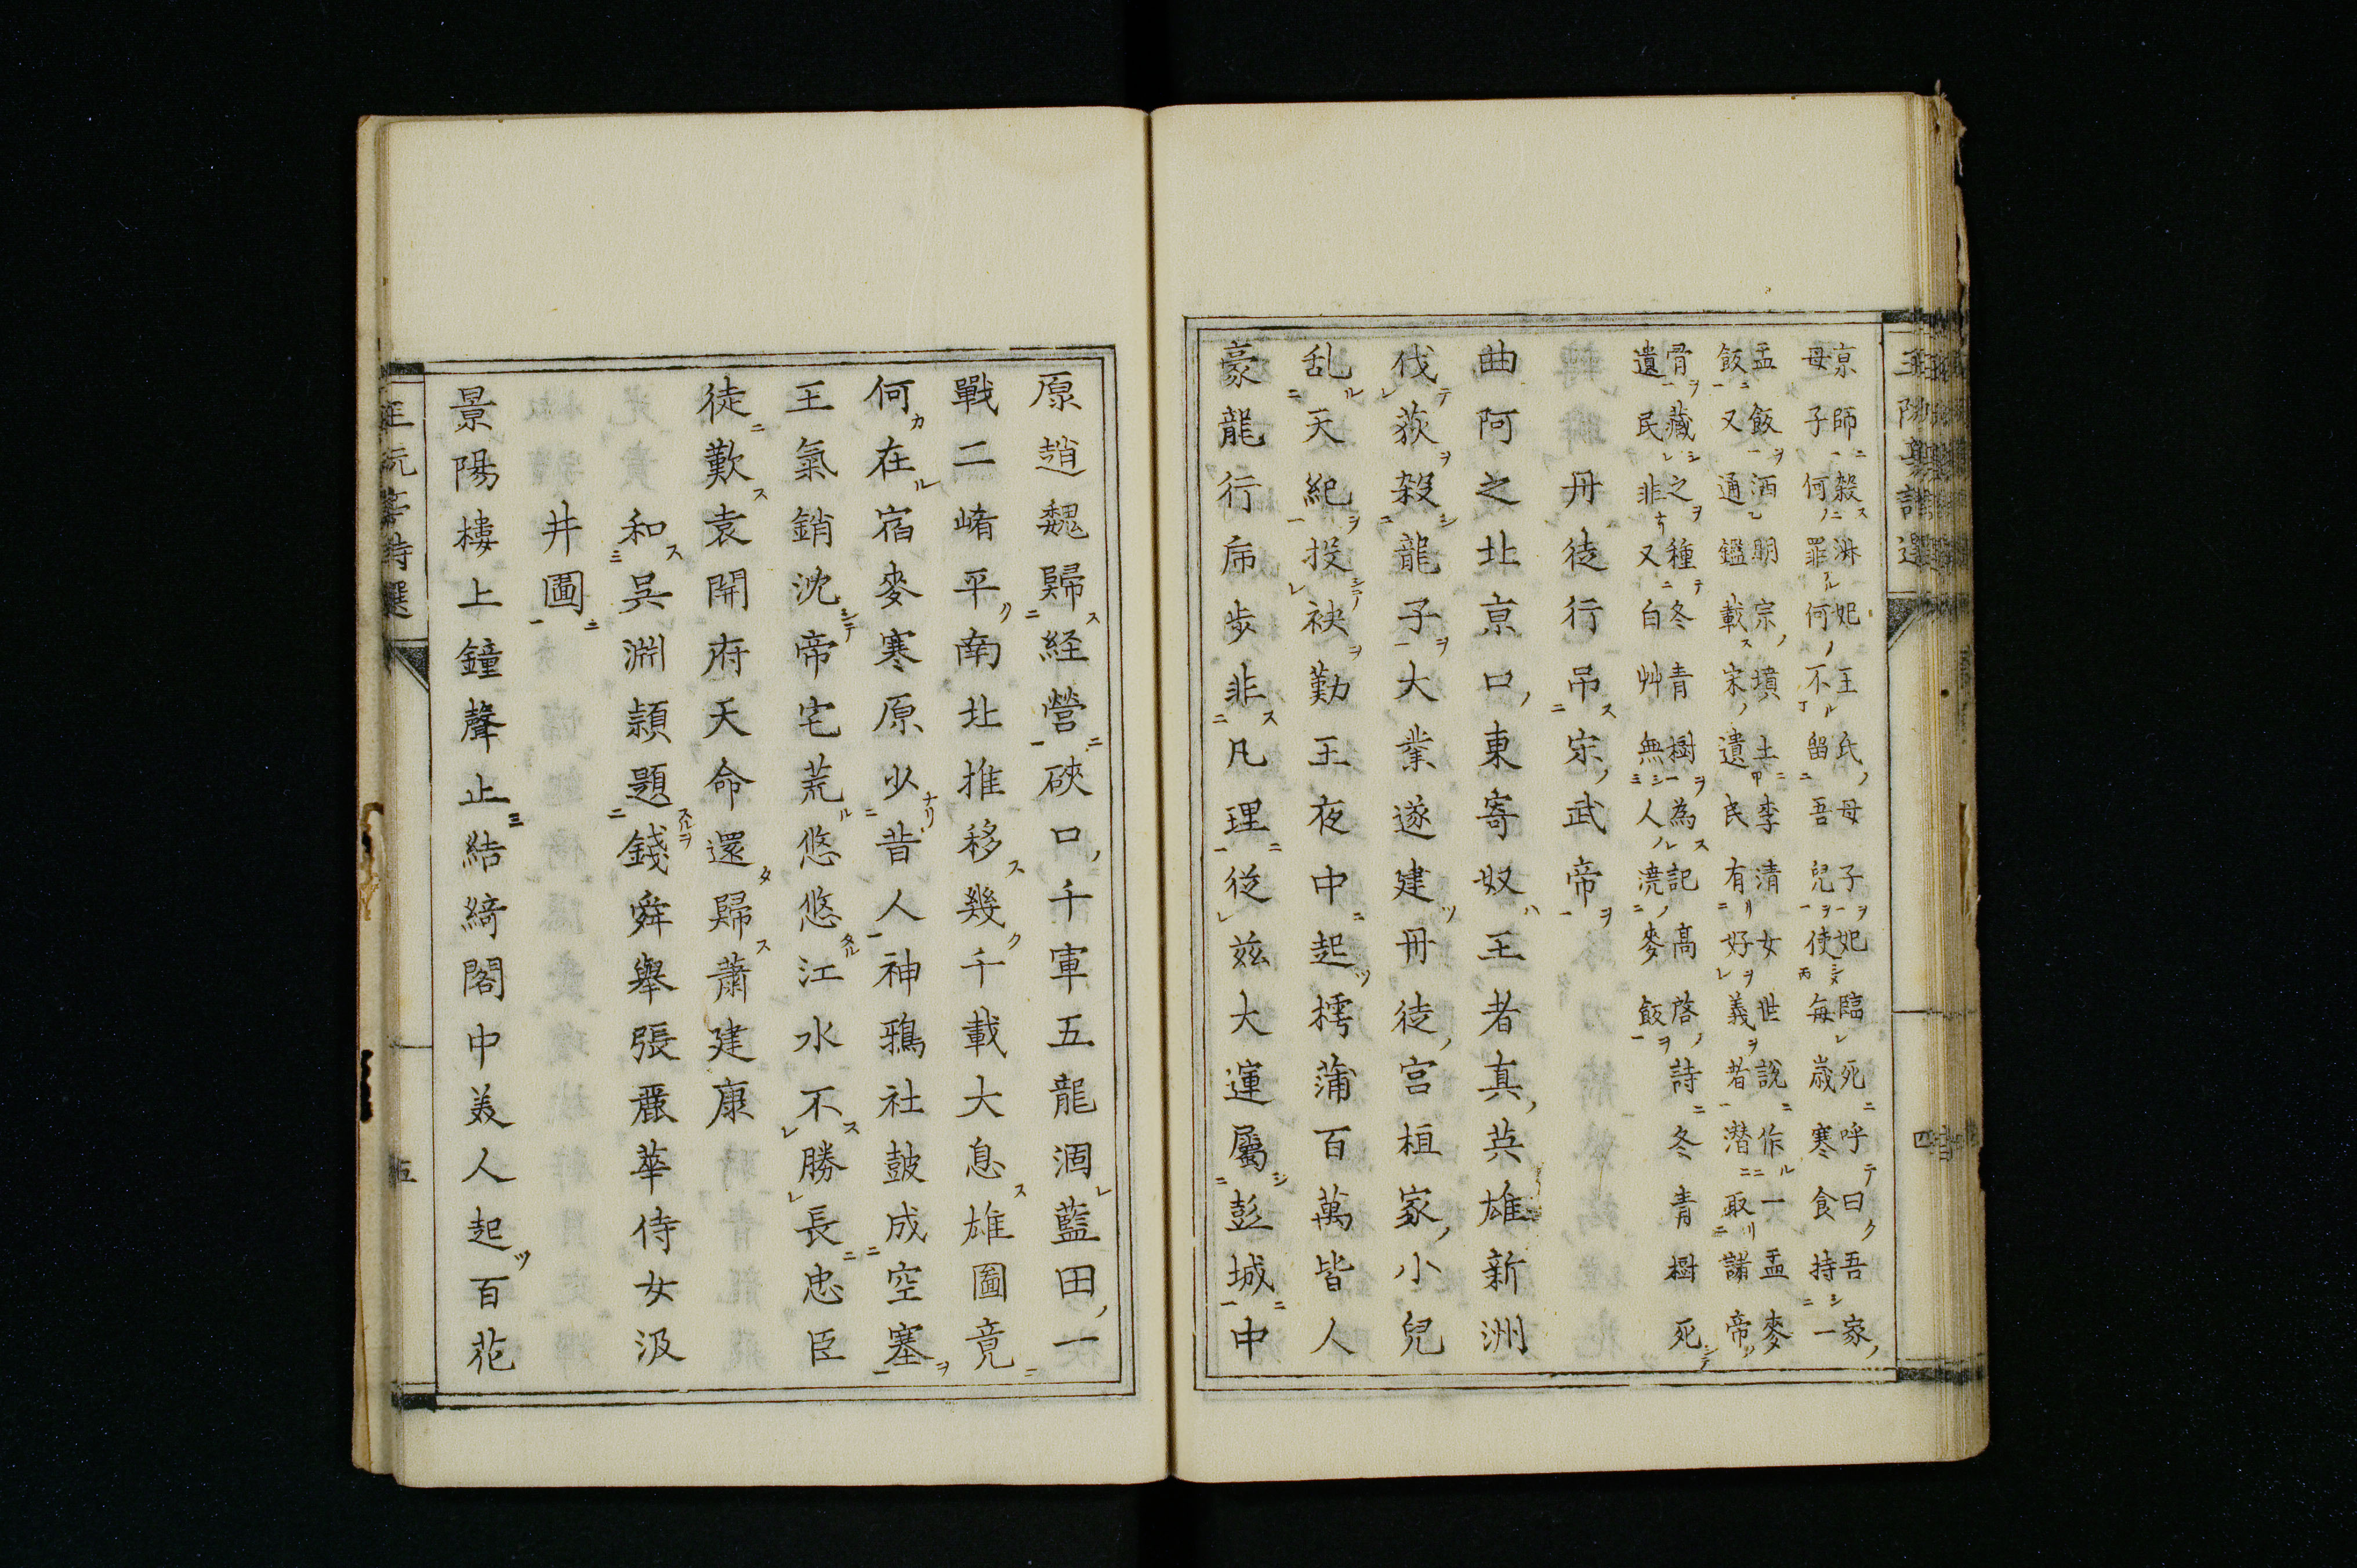 京師殺淋妃王氏母子妃臨死呼曰吾家
母子何罪何不留吾兒使毎歳寒食持一
盂飯洒明宗墳土李清女世説作一盂麥
飯又通鑑載宋遺民有好義者潜取諸帝
骨藏之種冬青樹為記高啓詩冬青樹死
遺民非又白艸無人澆麥飯
丹徒行吊宋武帝
曲阿之北京口東寄奴王者真英雄新洲
伐荻殺龍子大業遂建丹徒宮桓家小兒
乱天紀投袂勤王夜中起樗蒲百萬皆人
豪龍行乕歩非凡理從茲大運屬彭城中
原趙魏歸経營硤口千軍五龍涸藍田一
戰二崤平南北推移幾千載大息雄圖竟
何在宿麥寒原少昔人神鴉社鼓成空塞
王氣銷沈帝宅荒悠悠江水不勝長忠臣
徒歎袁開府天命還歸蕭建康
和呉淵頴題錢舜舉張麗華侍女汲
井圖
景陽樓上鐘聲止結綺閣中美人起百花
王阮亭詩選
五
四